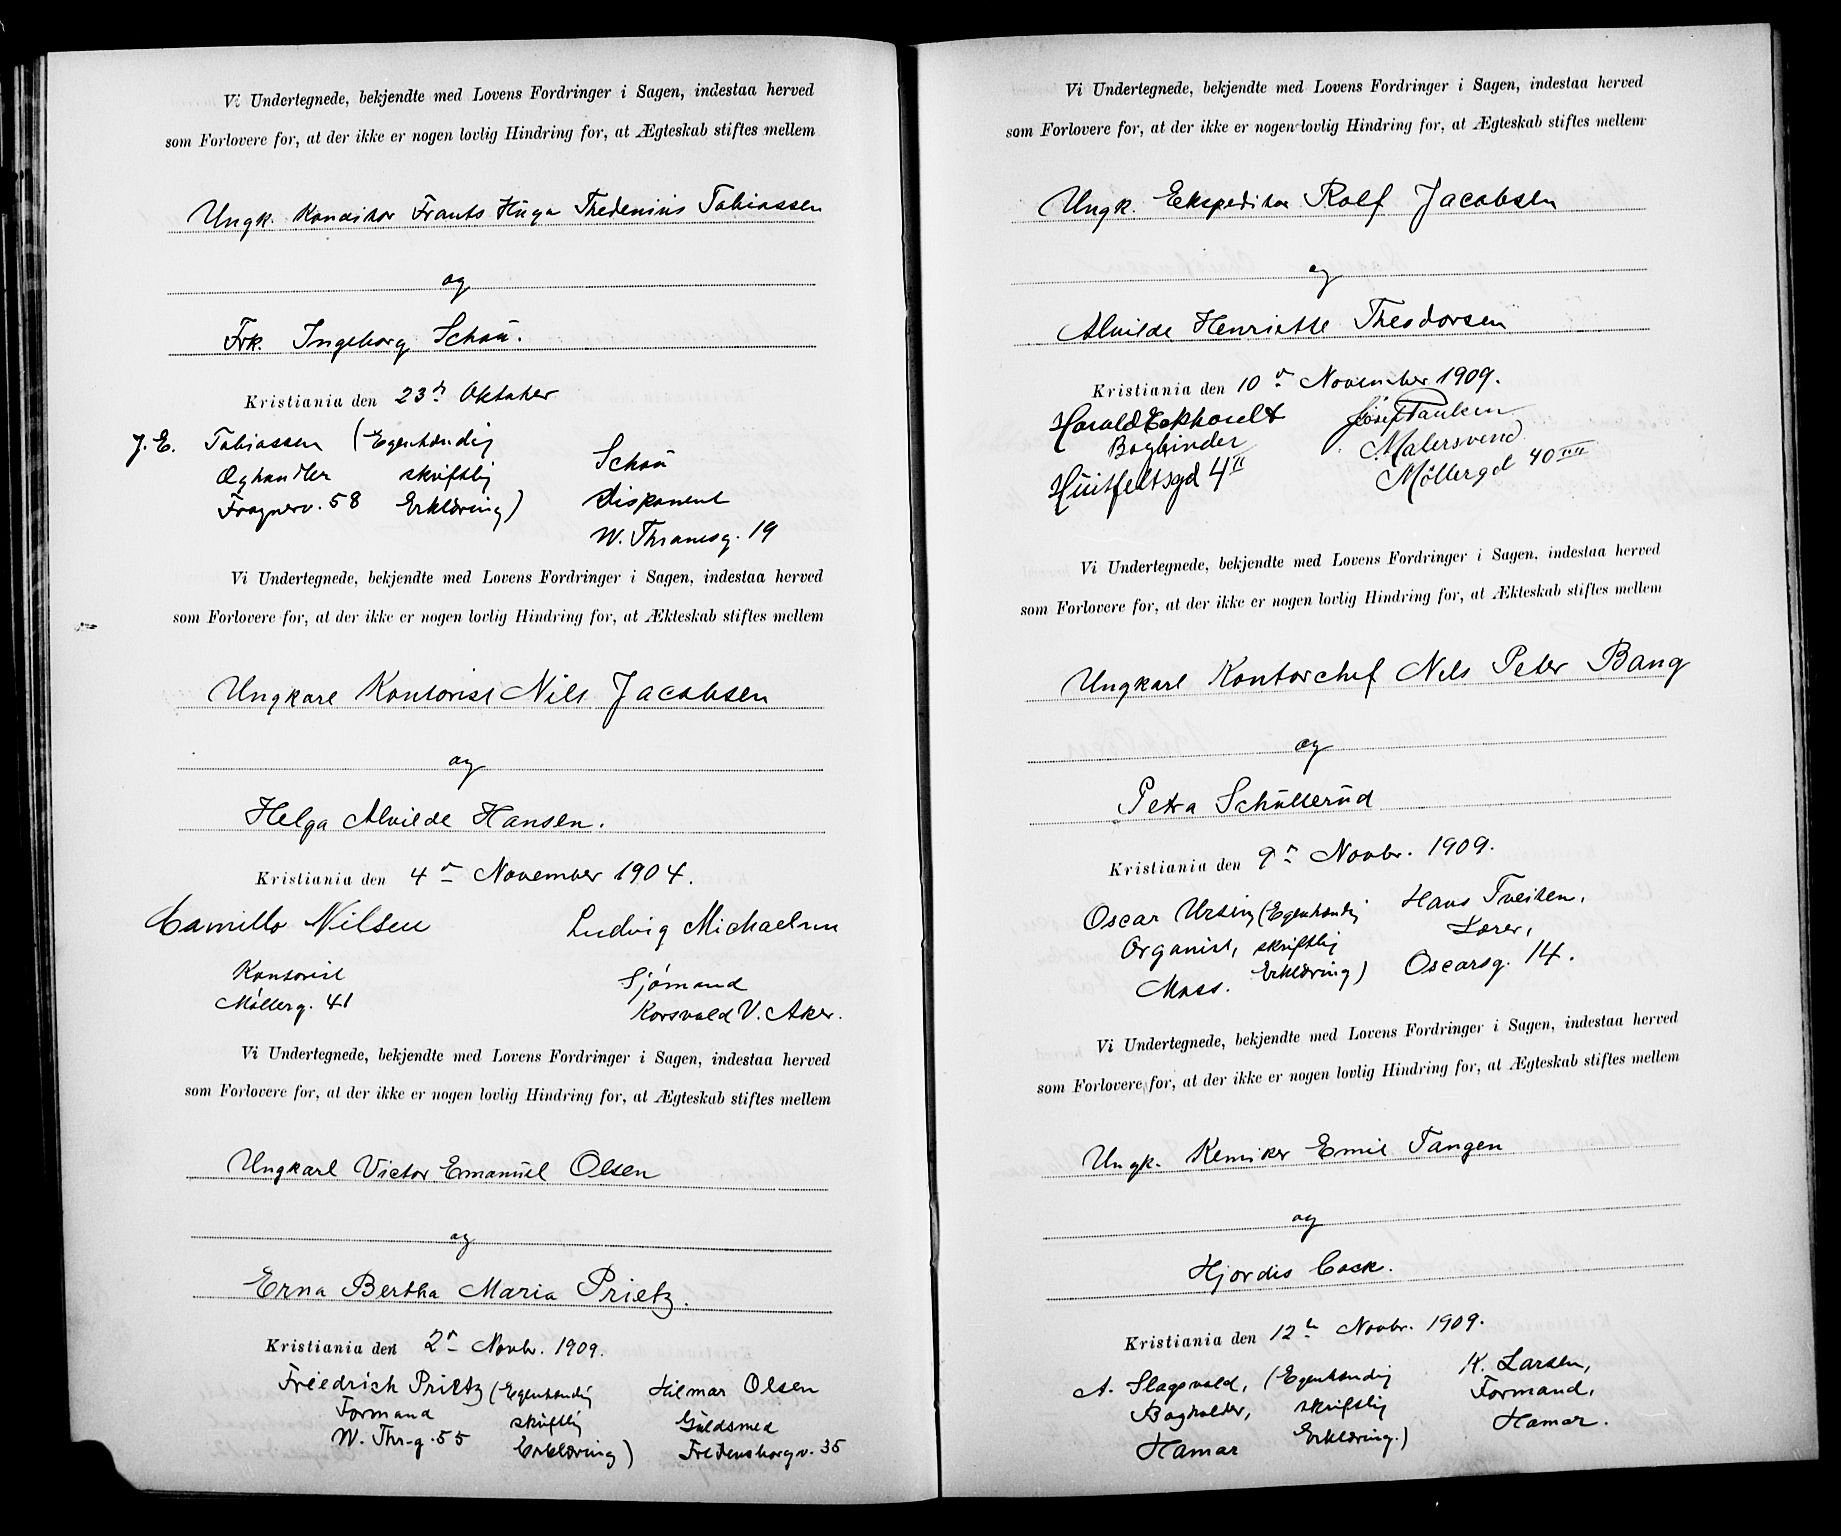 Vi Undertegnede, bekjendte med Lovens Fordringer i Sagen, indestaa herved
som Forlovere for, at der ikke er nogen lovlig Hindring for, at Ægteskab stiftes mellem
Ungk. Konditor Frants Hugo Thedenius Tobiassen
og
Frk. Ingeborg Schou.
Kristiania den 23de Oktober
J. E. Tobiassen (Egenhændig Schou
Oghandler skriftlig Disponent
Frognerv. 58 Erklæring) W. Thranesg. 19
Vi Undertegnede, bekjendte med Lovens Fordringer i Sagen, indestaa herved
som Forlovere for, at der ikke er nogen lovlig Hindring for, at Ækteskab stiftes mellem
Ungkarl Kontorist Nils Jacobsen
og
Helga Alvilde Hansen.
Kristiania den 4de November 1904.
Camillo Nilsen Ludvig Michaelsen
Kontorist Sjømand
Møllerg. 41 Korsvold V. Aker.
Vi Undertegnede, bekjendte med Lovens Fordringer i Sagen, indestaa herved
som Forlovere for, at der ikke er nogen lovlig Hindring for, at Ægteskab stiftes mellem
Ungkarl Victor Emanuel Olsen
og
Erna Bertha Maria Prietz.
Kristiania den 2de Novbr. 1909.
Friedrich Prietz (Egenhændig Hilmar Olsen
Formand skriftlig Guldsmed
W. Thr-g. 55 Erklæring) Fredensborgv. 35
Vi Undertegnede, bekjendte med Lovens Fordringer i Sagen, indestaa herved
som Forlovere for, at der ikke er nogen lovlig Hindring for, at Ægteskab stiftes mellem
Ungk. Ekspeditør Rolf Jacobsen
og
Alvilde Henriette Theodorsen
Kristiania den 10de November 1909.
Harald Eckhardt Josef Paulsen
Bogbinder Malersvend
Huitfeltsgd 4 II Møllergd 40 IIII
Vi Undertegnede, bekjendte med Lovens Fordringer i Sagen, indestaa herved
som Forlovere for, at der ikke er nogen lovlig Hindring for, at Ækteskab stiftes mellem
Ungkarl Kontorchef Nils Peter Bang
og
Petra Schüllerud
Kristiania den 9de Novbr. 1909.
Oscar Ursin (Egenhændig Hans Tveiten,
Organist, skriftlig Lærer,
Moss. Erklæring) Oscarsg. 14.
Vi Undertegnede, bekjendte med Lovens Fordringer i Sagen, indestaa herved
som Forlovere for, at der ikke er nogen lovlig Hindring for, at Ægteskab stiftes mellem
Ungk. Kemiker Emil Tangen
og
Hjordis Cock.
Kristiania den 12te Novbr. 1909.
A. Slagsvold, (Egenhændig K. Larsen,
Bogholder, skriftlig Formand,
Hamar Erklæring.) Hamar.